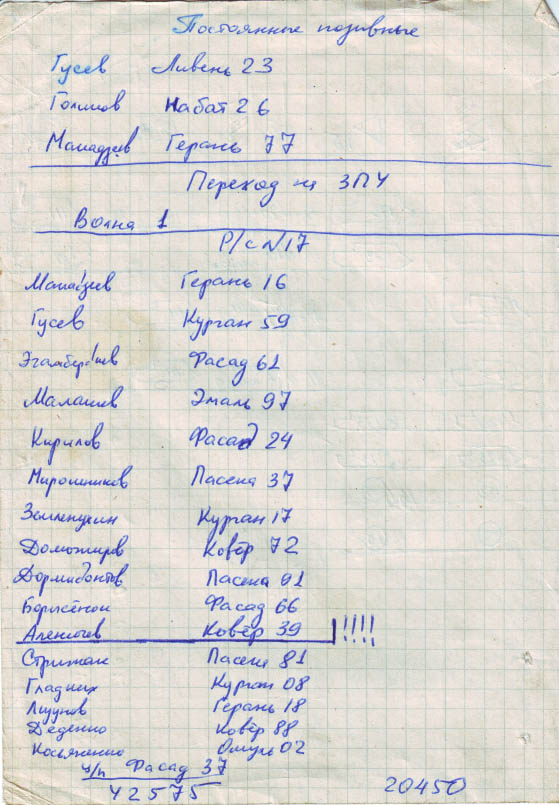 Постоянные позывные
Гусев Ливень 23
Голиков Набат 26
Мамадзеев Герань 77
Переход на ЗПУ
Волна 1
Р/с №17
Герань 16
Гусев Курган 59
Фасад 61
Малашев Эмаль 97
Кирилов Фасад 24
Мирошников Пасека 37
Курган 17
Доможиров Ковёр 72
Дормидонтов Пасека 91
Борисёнок Фасад 66
Ковёр 39 !!!!
Стрижак Пасека 81
Гладких Курган 08
Герань 18
Деденко Ковёр 88
Косьяненко 02
ч/п Фасад 37
42575 20450